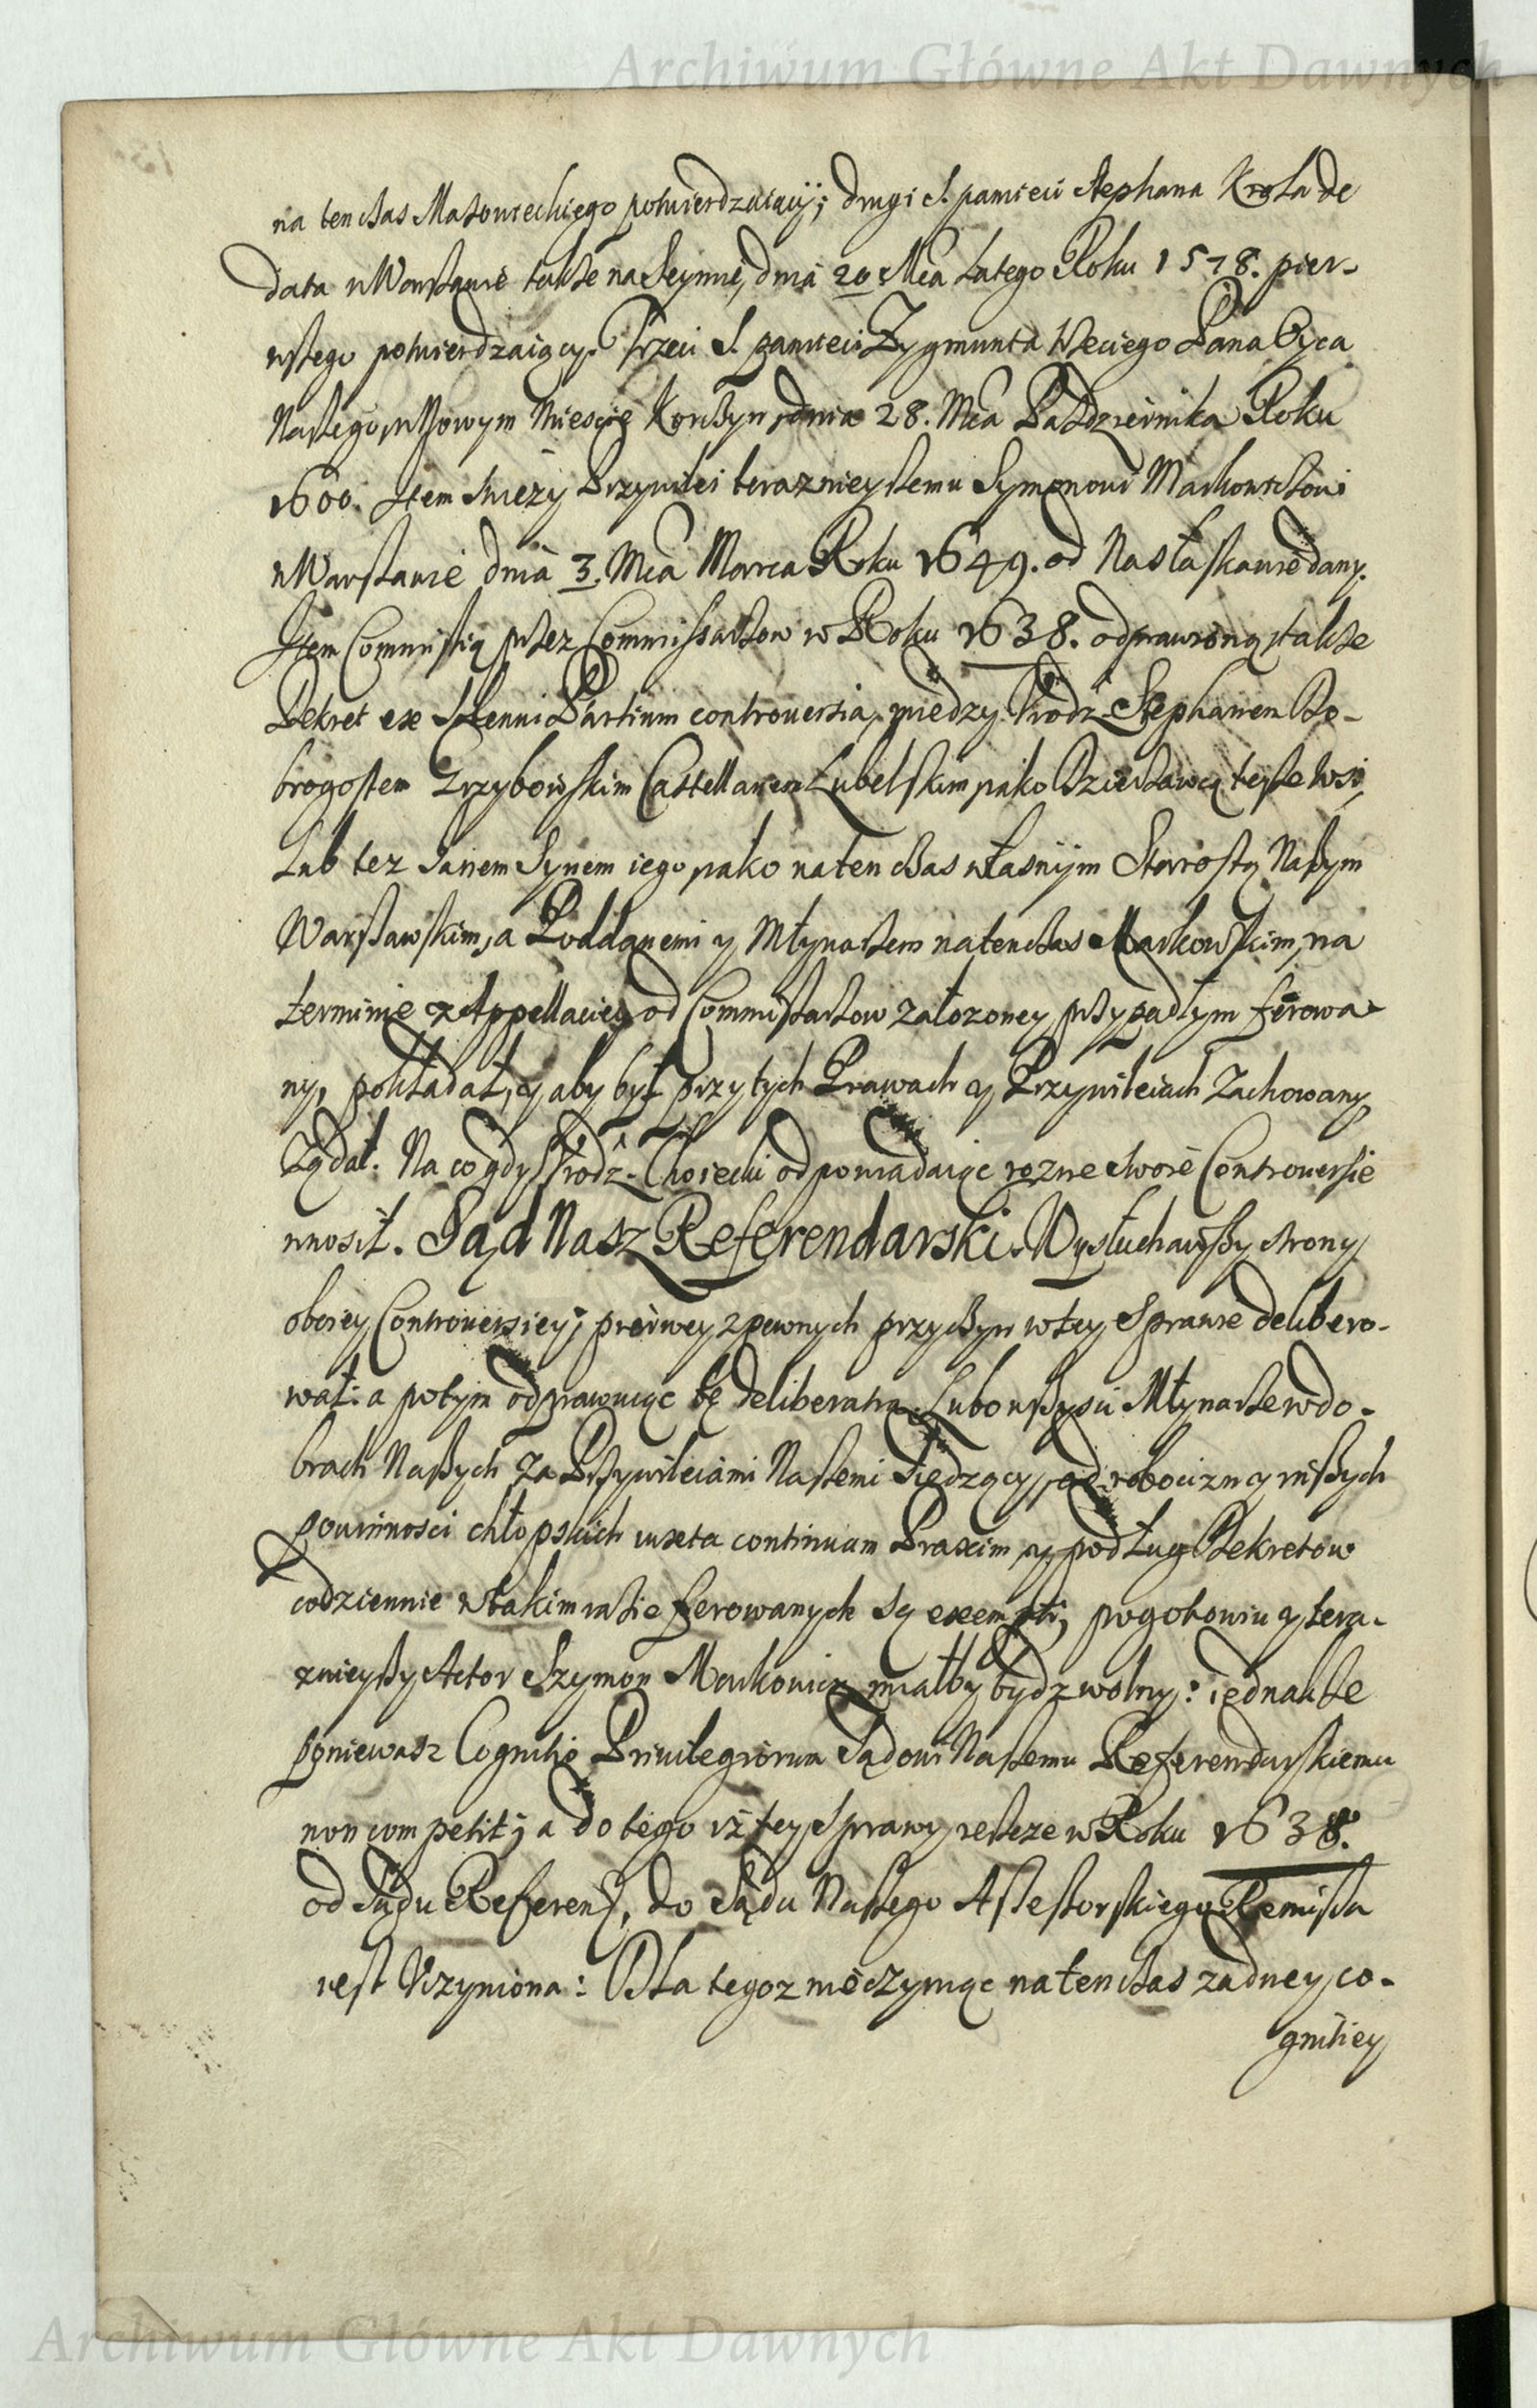 Archiwum Główne Akt Dawnych
na ten czas Mazowieckiego potwierdzaiący; drugi S. pamieci Stephana Krola de
data w Warszawie także na Seymie, dnia 20 Mca Lutego Roku 1578. pier-
wszego potwierdzaiący. Trzeci S. pamieci Zygmunta IIIeciego Pana Oyca
Naszego, w Nowym Miescie Korczyn, dnia 28. Mca Pazdziernika Roku
1600. Item swiezy Przywilei teraznieyszemu Symonowi Markowiczowi
w Warszawie dnia 3. Mca Marca Roku 1649. od Nas łaskawie dany.
Item Commissią przez Commissarzow w Roku 1638. odprawioną, także
Dekret ex solenni Partium controversia, miedzy Urodz. Stephanem Do-
brogostem Grzybowskim Castellanem Lubelskim, iako Dzierzawcą teyże wsi,
Lub tez Janem Synem iego, iako na ten czas własnym Starostą Naszym
Warszawskim, a Poddanemi y Młynarzem natenczas Markowskim, na
terminie z Appellaciey od Commissarzow załozoney przypadłym ferowa-
ny, pokładał, y aby był przy tych Prawach y Przywileiach zachowany
Ządał. Na co gdy Urodz. Choiecki odpowiadaiąc rozne swoie Controversie
wnosił. Sąd Nasz Referendarski. Wysłuchawszy strony
oboiey Controversiey; pierwey z pewnych przyczyn w tey Sprawie delibero-
wał: a potym odprawuiąc tę deliberatią. Lubo wszysci Młynarze w do-
brach Naszych za Przywileiami Naszemi Siedzący, od robocizn y inszych
powinnosci chłopskich iuxta continuam Praxim y podług Dekretow
codziennie w takim razie ferowanych są exempti; pogotowiu y tera-
znieyszy Actor Szymon Markowicz miałby bydz wolny: iednakże
poniewasz Cognitio Privilegiorum Sądowi Naszemu Referendarskiemu
non competit; a do tego iż tey Sprawy ieszcze w Roku 1638.
od Sądu Referend. do Sądu Naszego Assessorskiego Remissia
iest Uczyniona: Dla tegoz nie czyniąc na ten czas zadney co-
gnitiey
Archiwum Główne Akt Dawnych